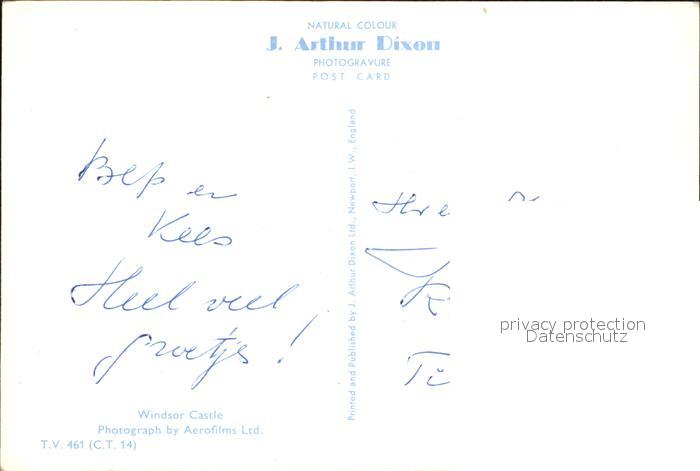 NATURAL COLOUR
J. Arthur Dixon
PHOTOGRAVURE
POST CARD
Bep en
Kees
Heel veel
groetjes!
Printed and Published by J. Arthur Dixon Ltd., Newport, I.W., England
privacy protection
Datenschutz
Windsor Castle
Photograph by Aerofilms Ltd.
T.V. 461 (C.T. 14)